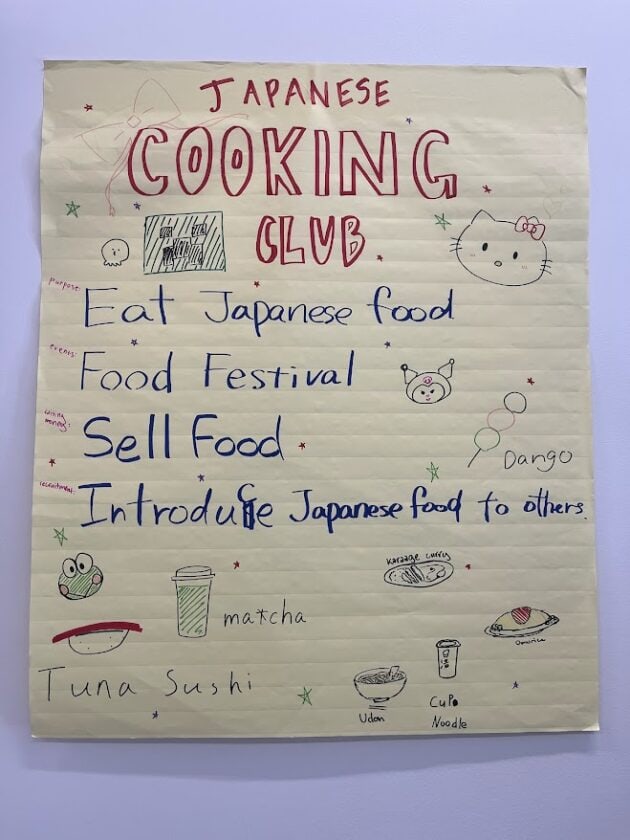 JAPANESE
COOKING
CLUB
purpose:
Eat Japanese food
events:
Food Festival
raising
money:
Sell Food
Dango
recruitment:
Introduce Japanese food to others.
karaage curry
matcha
omurice
Tuna Sushi
Udon
Cup
Noodle